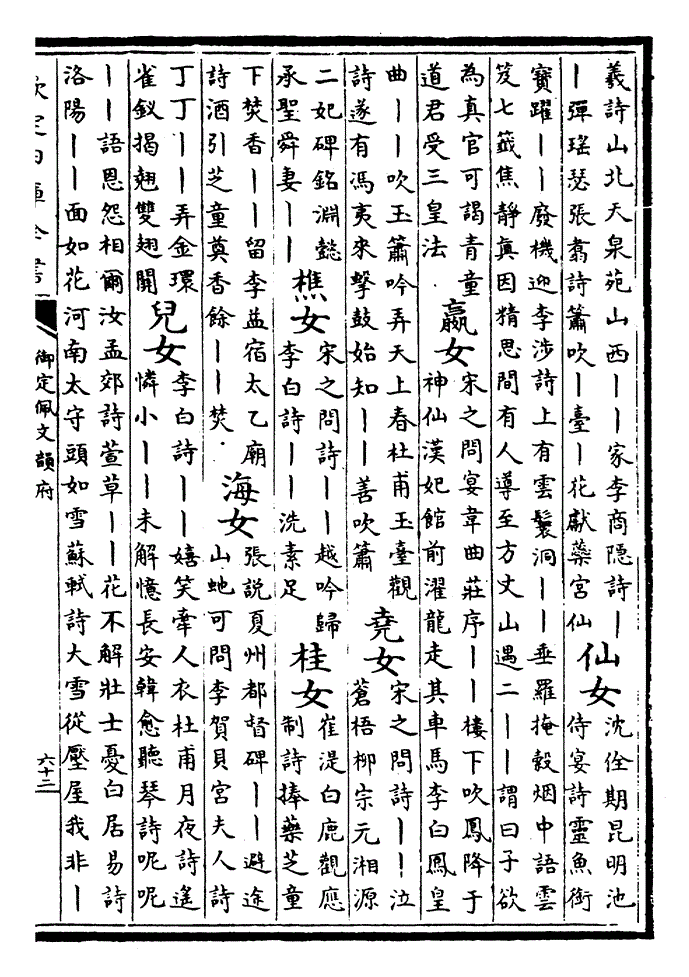 羲詩山北天泉苑山西丨丨家李商隱詩丨
丨彈瑤瑟張翥詩簫吹丨臺丨花獻藥宮仙
仙女
沈佺期昆明池
侍宴詩靈魚銜
寶躍丨丨廢機迎李涉詩上有雲鬟洞丨丨垂羅掩縠烟中語雲
笈七籤焦靜真因精思間有人導至方丈山遇二丨丨謂曰子欲
為真官可謁青童
道君受三皇法
嬴女
宋之問宴韋曲莊序丨丨樓下吹鳳降于
神仙漢妃館前濯龍走其車馬李白鳳皇
曲丨丨吹玉簫吟弄天上春杜甫玉臺觀
詩遂有馮夷來擊鼓始知丨丨善吹簫
堯女
宋之問詩丨丨泣
蒼梧柳宗元湘源
二妃碑銘淵懿
承聖舜妻丨丨
樵女
宋之問詩丨丨越吟歸
李白詩丨丨洗素足
桂女
崔湜白鹿觀應
制詩捧藥芝童
下焚香丨丨留李益宿太乙廟
詩酒引芝童奠香餘丨丨焚
海女
張說夏州都督碑丨丨避途
山虵可問李賀貝宮夫人詩
丁丁丨丨弄金環
雀釵揭翹雙翅關
兒女
李白詩丨丨嬉笑牽人衣杜甫月夜詩遙
憐小丨丨未解憶長安韓愈聽琴詩呢呢
丨丨語恩怨相爾汝孟郊詩萱草丨丨花不解壯士憂白居易詩
洛陽丨丨面如花河南太守頭如雪蘇軾詩大雪從壓屋我非丨
欽定四庫全書
御定佩文韻府
六十三